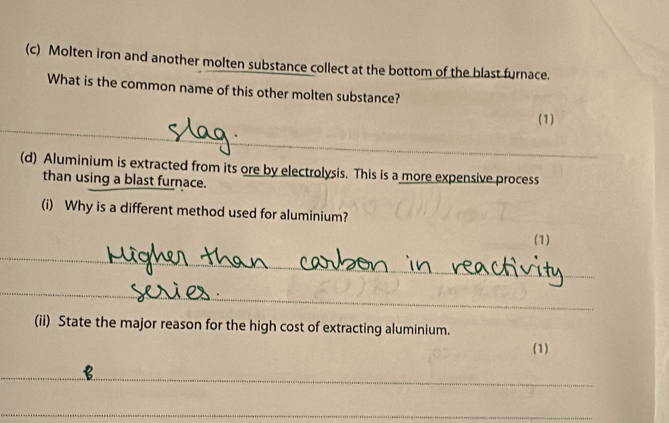 (c) Molten iron and another molten substance collect at the bottom of the blast furnace.
What is the common name of this other molten substance?
(1)
slag.
(d) Aluminium is extracted from its ore by electrolysis. This is a more expensive process
than using a blast furnace.
(i) Why is a different method used for aluminium?
(1)
Higher than carbon in reactivity
series.
(ii) State the major reason for the high cost of extracting aluminium.
(1)